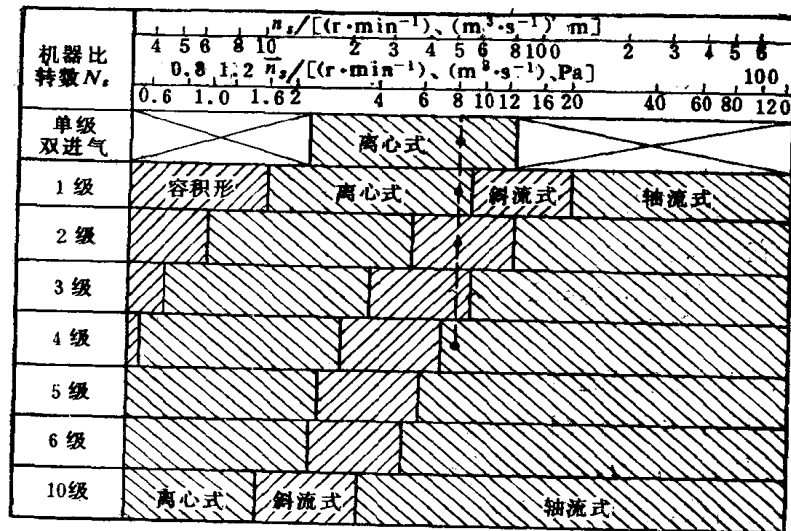 机器比
转数Nₛ
nₛ/[(r·min⁻¹)、(m³·s⁻¹)、m]
4 5 6 8 10 2 3 4 5 6 8 100 2 3 4 5 6
0.8 1.2 n̄ₛ/[(r·min⁻¹)、(m³·s⁻¹)、Pa] 100
0.6 1.0 1.6 2 4 6 8 10 12 16 20 40 60 80 120
单级
双进气
离心式
1级 容积形 离心式 斜流式 轴流式
2级
3级
4级
5级
6级
10级 离心式 斜流式 轴流式